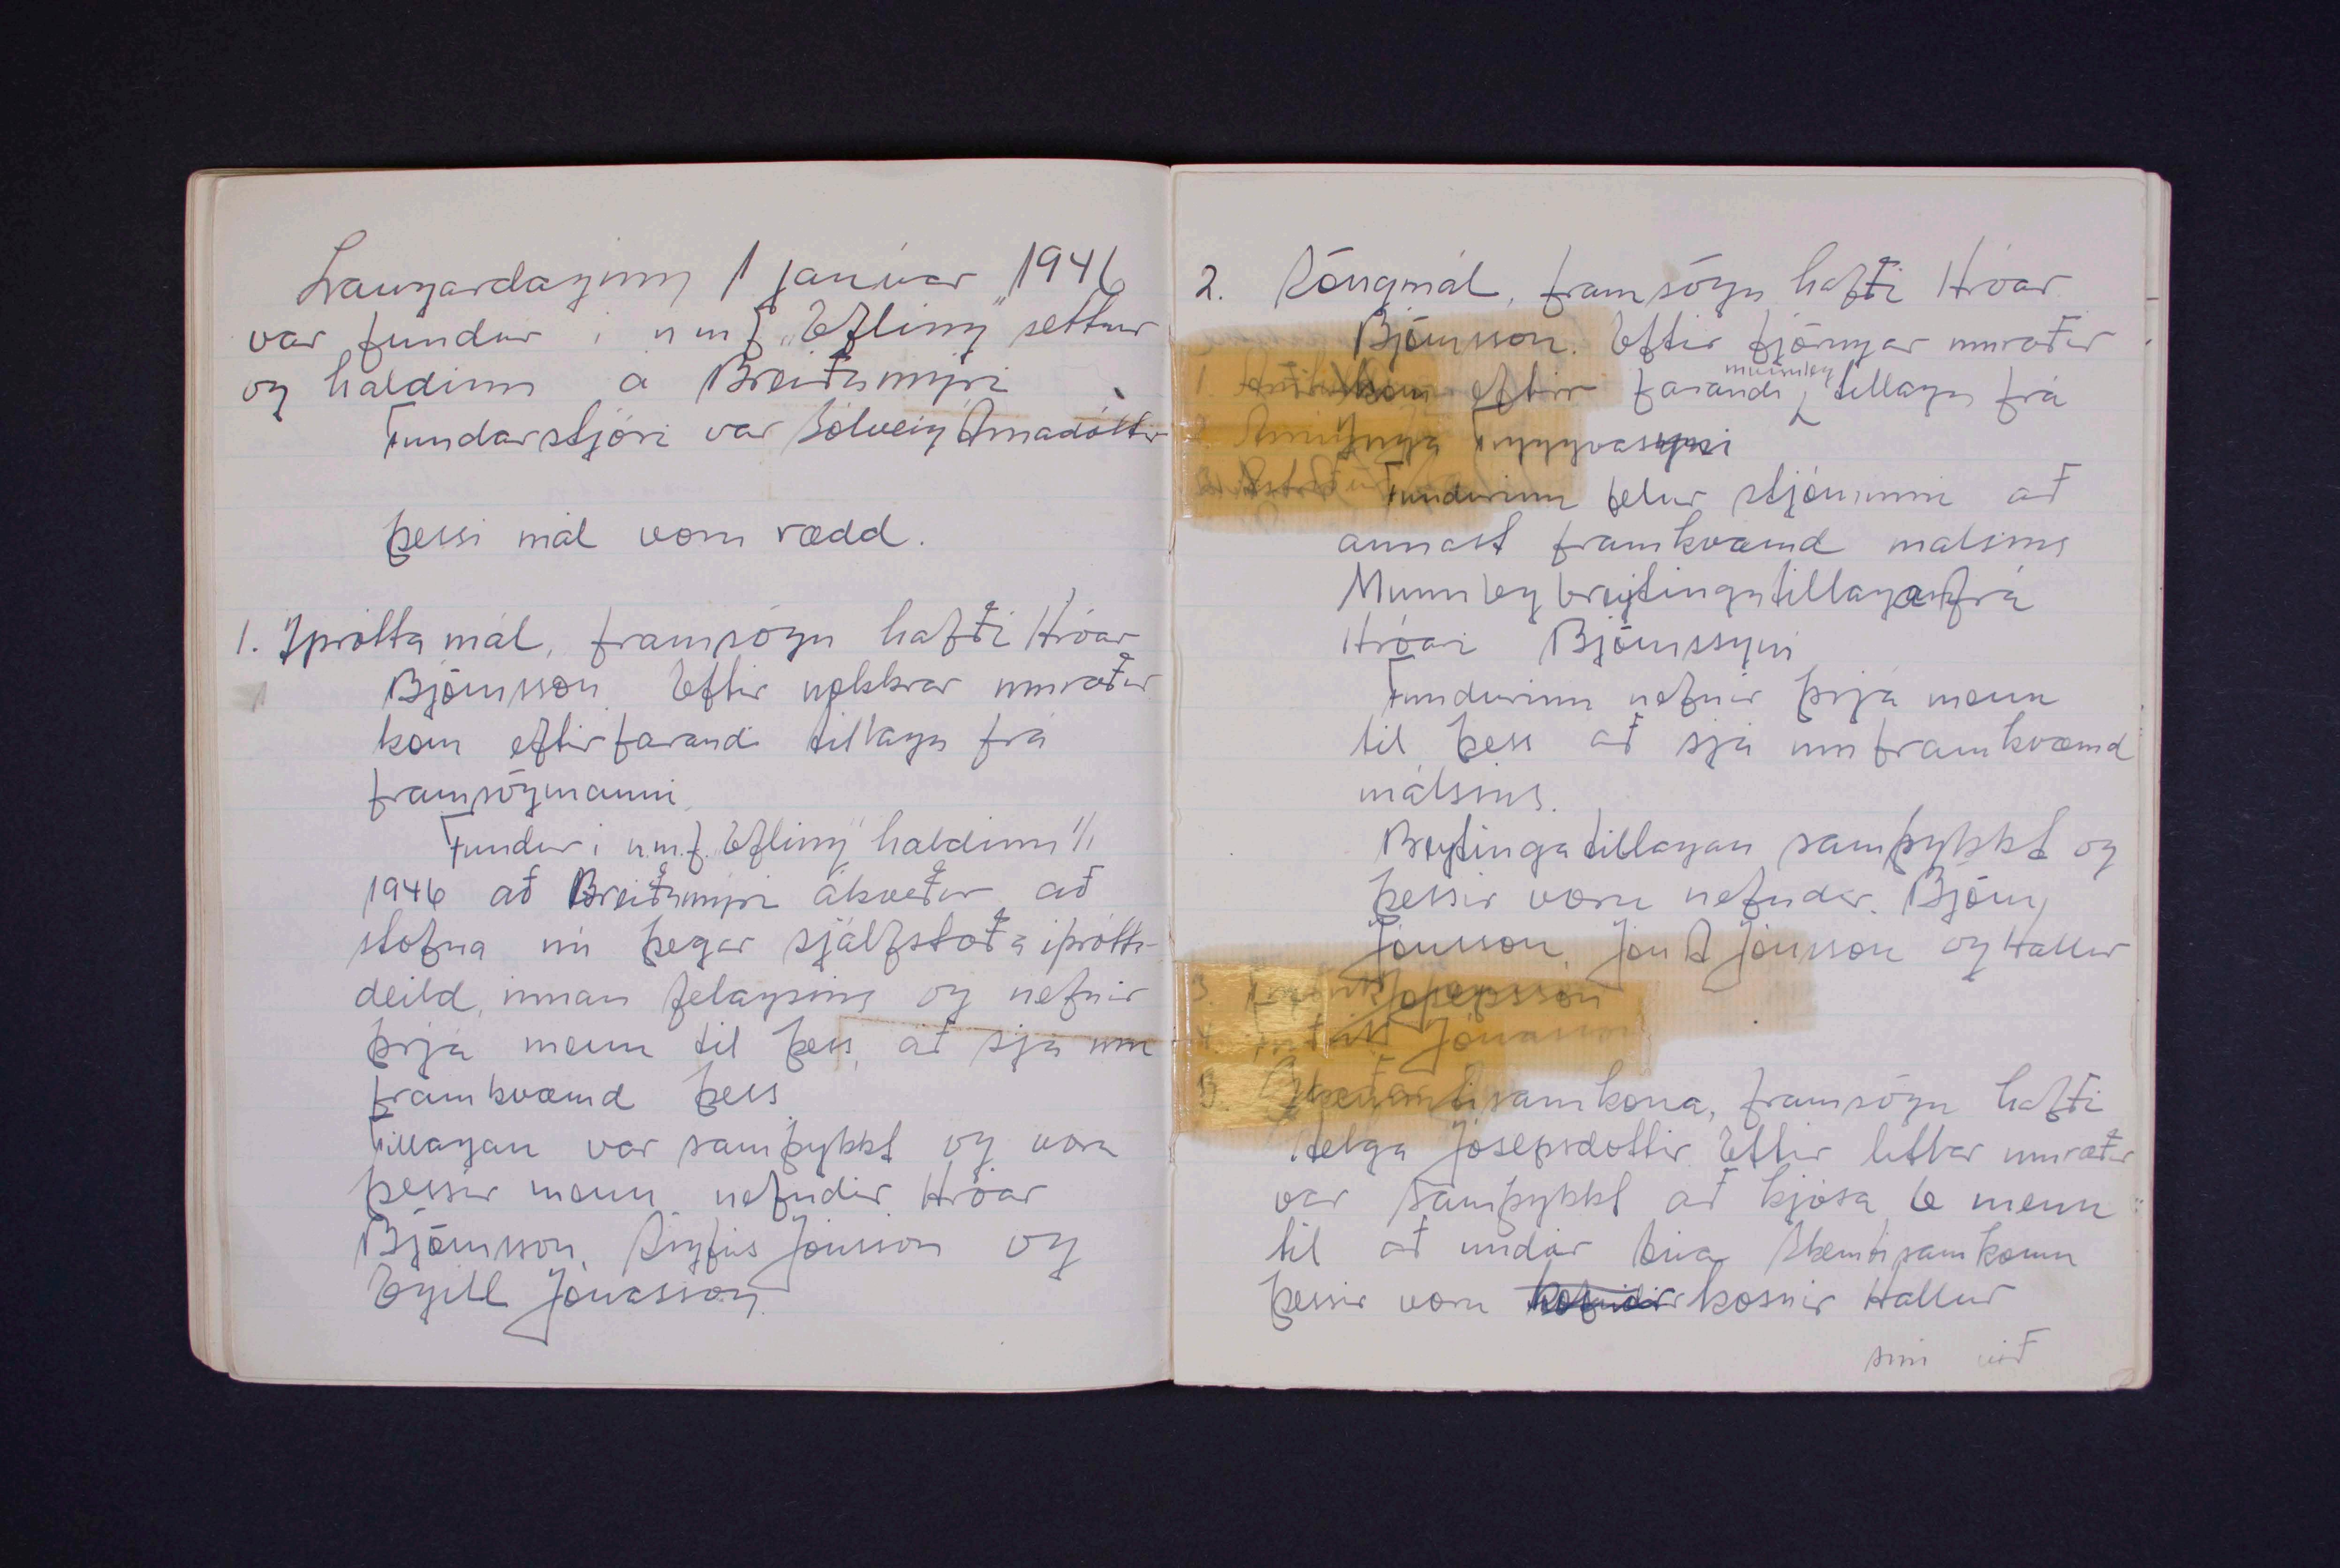 Laugardaginn 1 janúar 1946
var fundur í u m f „Efling" settur
og haldinn á Breiðumýri
Fundarstjóri var Sólveig Arnadóttir
þessi mál voru rædd.
1. Iþrótta mál, framsögu hafði Hróar
Björnsson. Eftir nokkrar umræður
kom eftirfarandi tillaga frá
framsögumanni.
Fundur í u.m.f. „Efling" haldinn 1/1
1946 að Breiðumýri ákveður að
stofna nú þegar sjálfstæða íþrótta-
deild, innan felagsins og nefnir
þrjá menn til þess, að sjá um
framkvæmd þess
Tillagan var samþykkt og voru
þessir menn nefndir Hróar
Björnsson, Sigfús Jónsson og
Egill Jónasson.
2. Söngmál, framsögn hafði Hróar
Björnsson. Eftir fjörugar umræður
kom eftir farandi munnleg tillaga frá
Tryggvasyni
Fundurinn felur stjórninni að
annast framkvæmd málsins
Munnleg breytingatillaga frá
Hróari Björnssyni
Fundurinn nefnir þrjá menn
til þess að sjá um framkvæmd
málsins.
Breytingatillagan samþykkt og
þessir voru nefndir. Björn
Jónsson, Jón A Jónsson og Hallur
Jósepsson
3. Skemtisamkoma, framsögn hafði
Helga Jósepsdóttir Eftir litlar umræður
var samþykkt að kjósa 6 menn
til að undir búa Skemtisamkomu
þessir voru kosnir Hallur
snú við